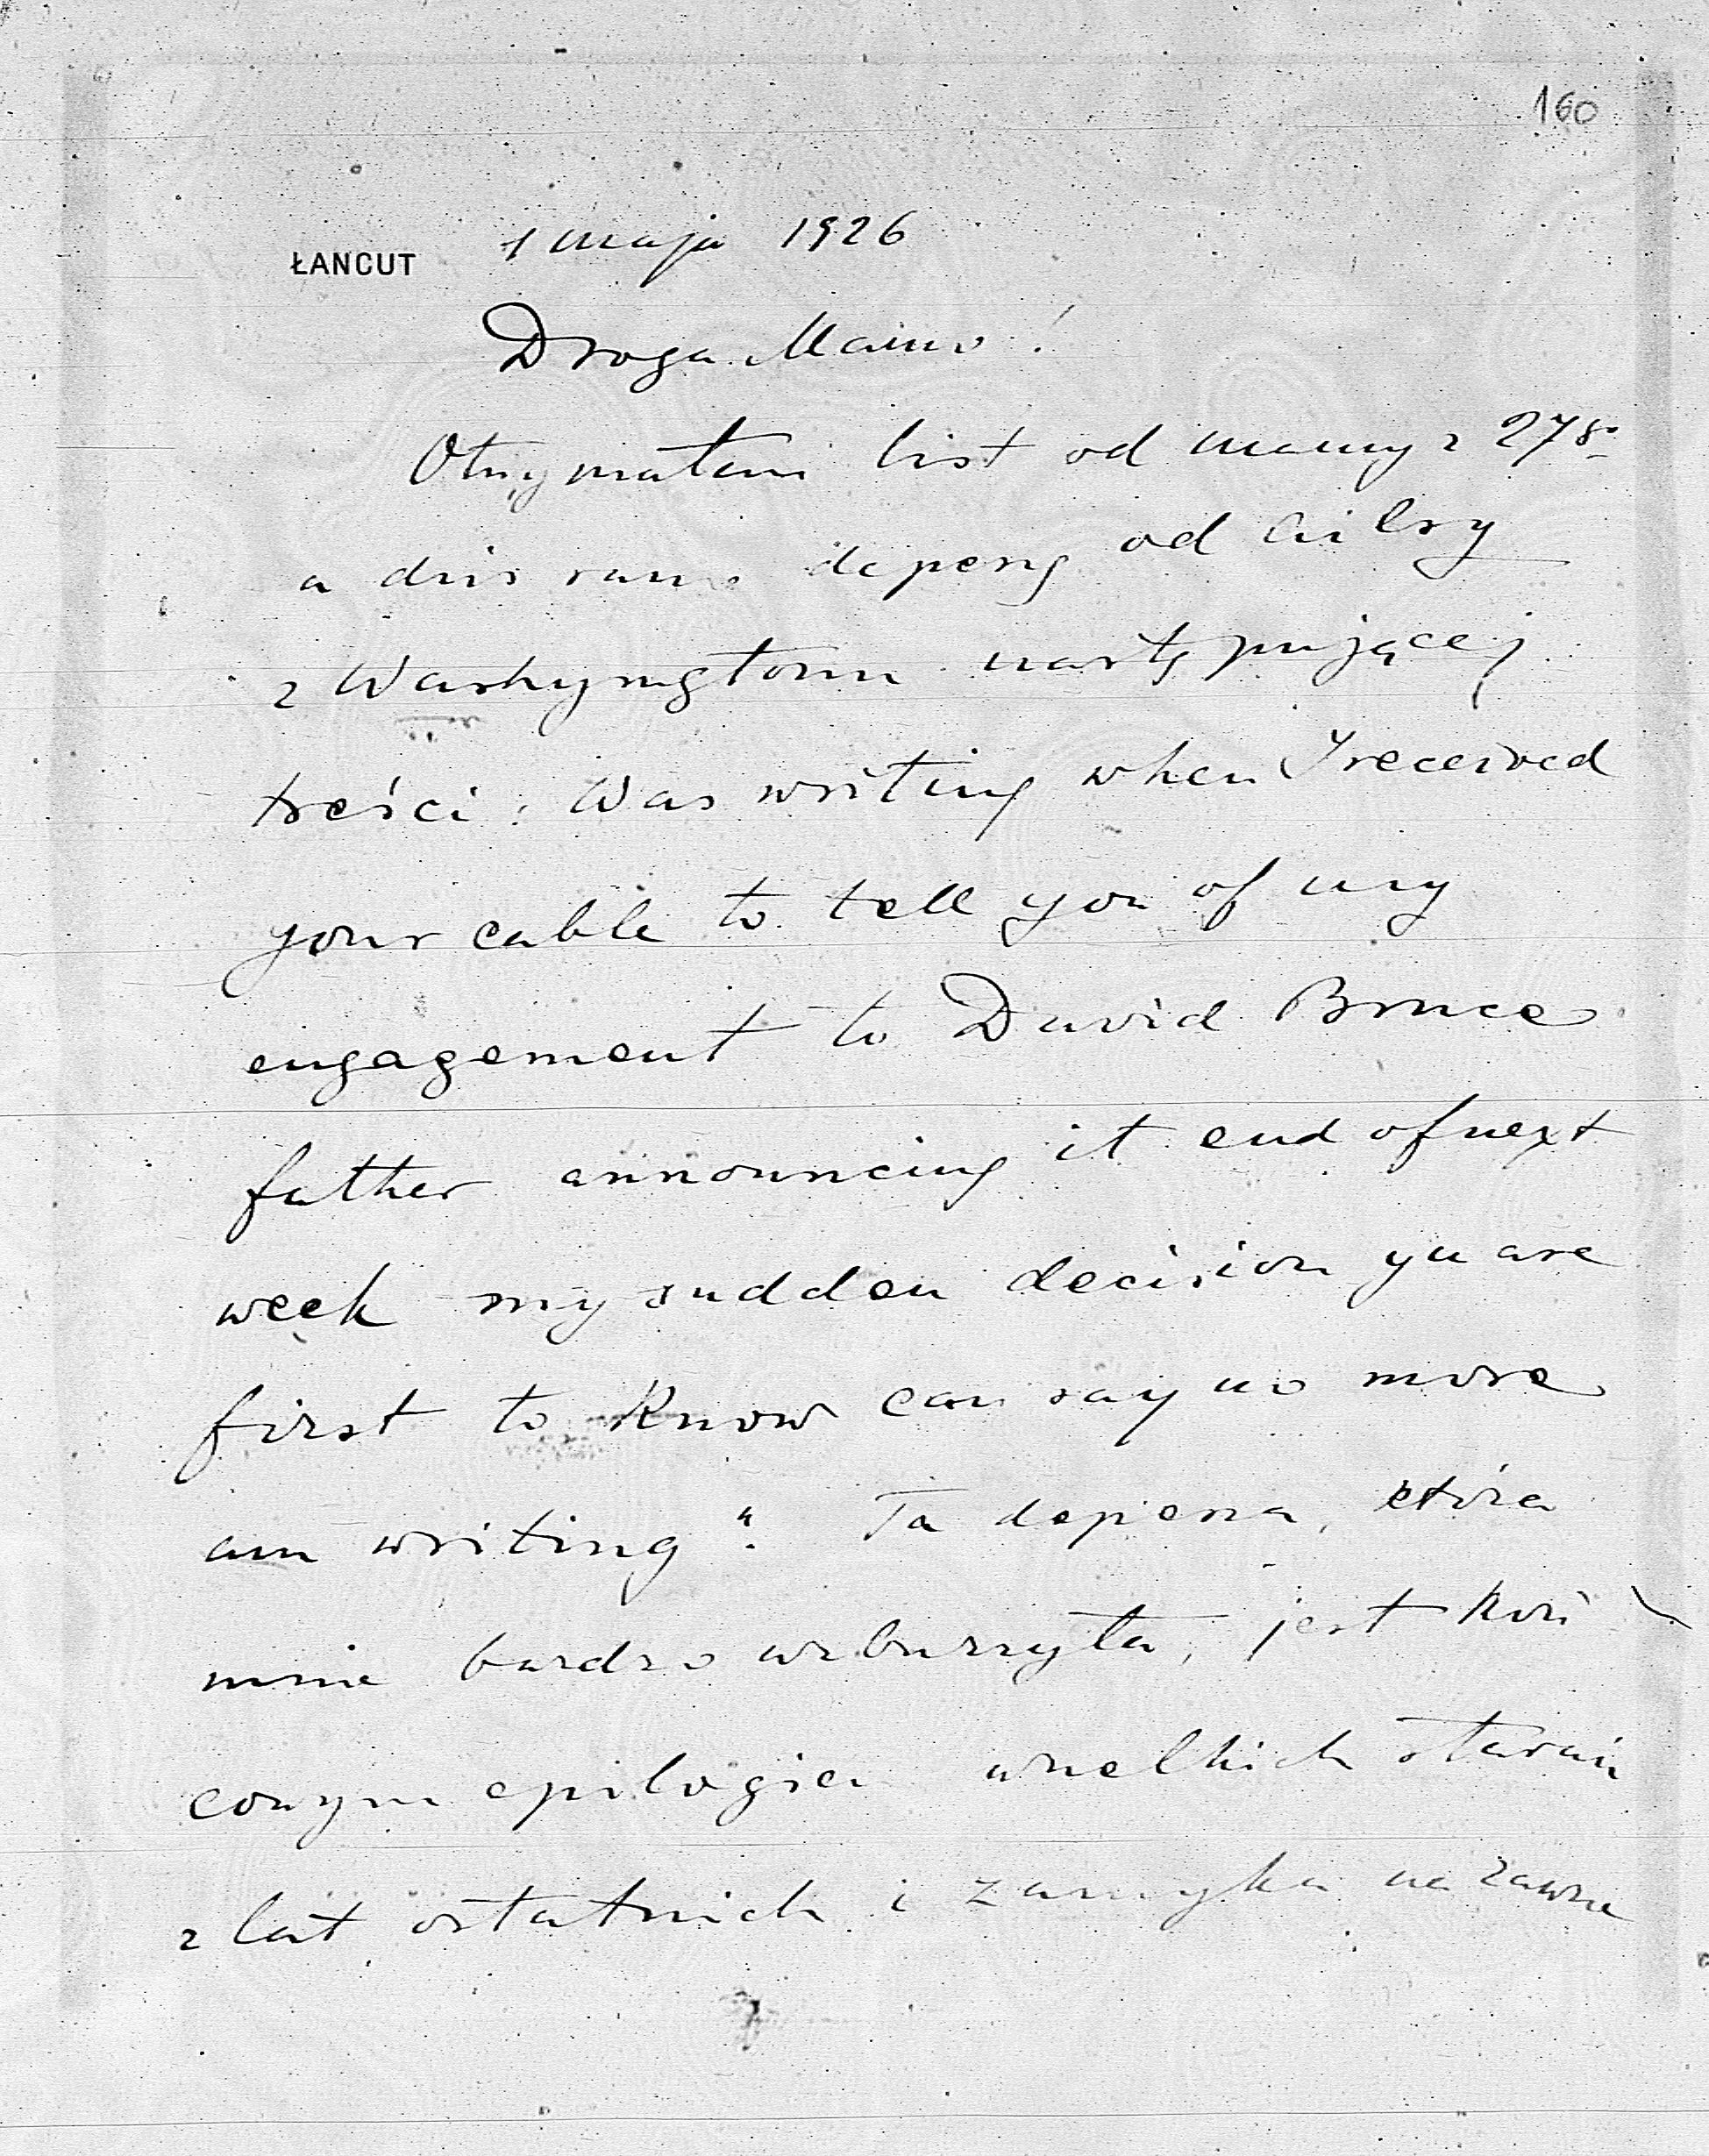 160
ŁANCUT 1 maja 1926
Droga Mamo!
Otrzymałem list od mamy z 27go
a dziś rano depeszę od Ailsy
z Washyngtonu następującej
treści: Was writing when I received
your cable to tell you of my
engagement to David Bruce
father announcing it end of next
week my sudden decision yu are
first to know can say no more
am writing". Ta depesza, która
mnie bardzo wzburzyła, jest koń
cowym epilogiem wszelkich starań
z lat ostatnich i zamyka na zawsze